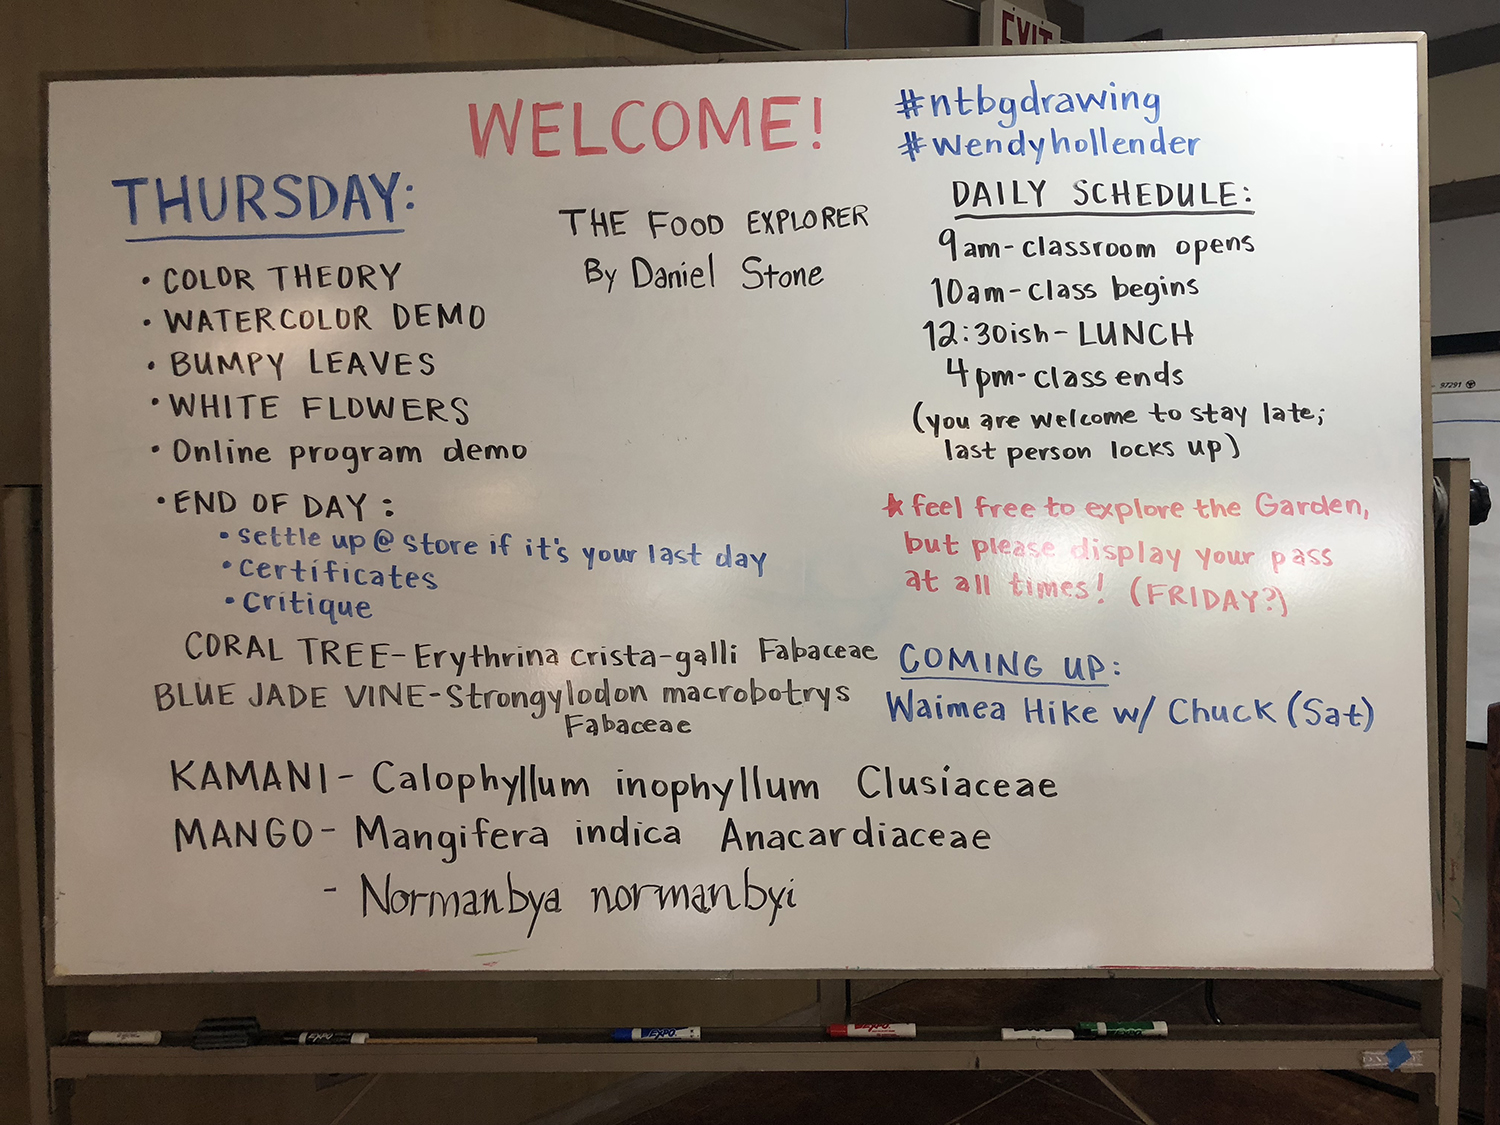 EXIT
WELCOME!
#ntbgdrawing
#wendyhollender
THURSDAY:
• COLOR THEORY
• WATERCOLOR DEMO
• BUMPY LEAVES
• WHITE FLOWERS
• Online program demo
• END OF DAY:
• settle up @ store if it's your last day
• certificates
• Critique
THE FOOD EXPLORER
By Daniel Stone
DAILY SCHEDULE:
9am- classroom opens
10am- class begins
12:30ish- LUNCH
4pm- class ends
(you are welcome to stay late;
last person locks up)
* feel free to explore the Garden,
but please display your pass
at all times! (FRIDAY?)
CORAL TREE- Erythrina crista-galli Fabaceae
BLUE JADE VINE- Strongylodon macrobotrys
Fabaceae
COMING UP:
Waimea Hike w/ Chuck (Sat)
KAMANI- Calophyllum inophyllum Clusiaceae
MANGO- Mangifera indica Anacardiaceae
- Normanbya normanbyi
97291
EXPO
EXPO
EXPO